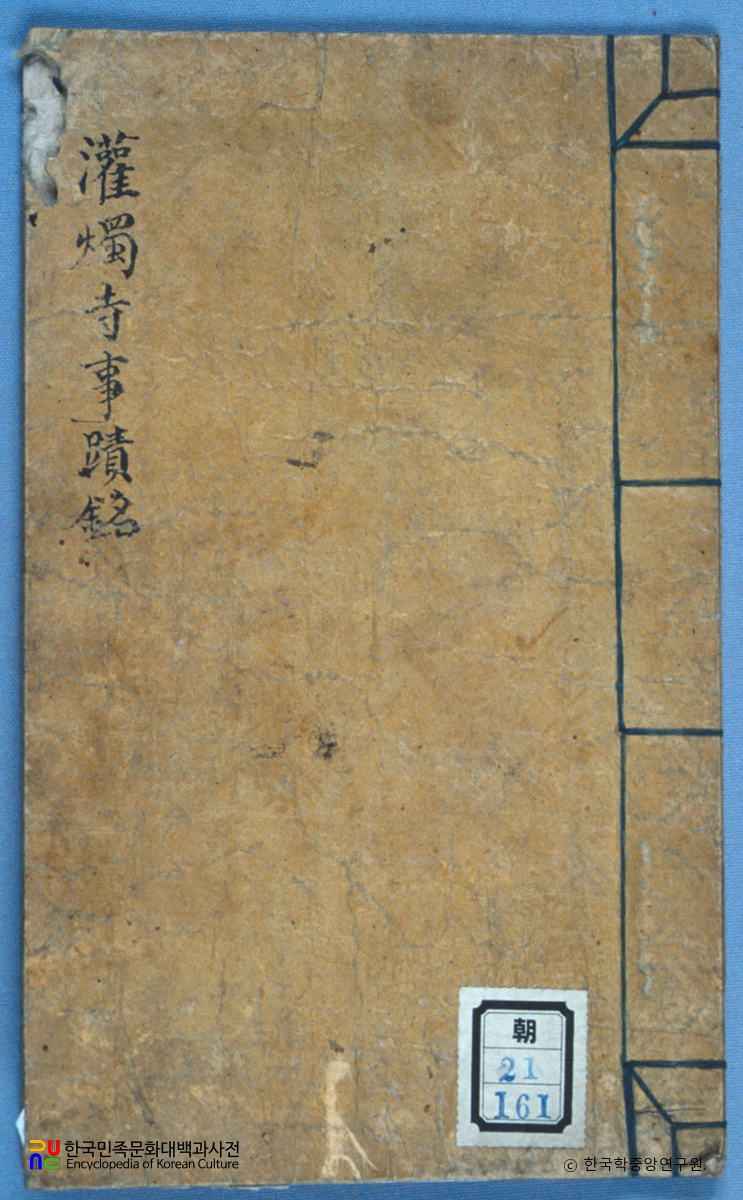 灌燭寺事蹟銘
朝
21
161
한국민족문화대백과사전
Encyclopedia of Korean Culture
© 한국학중앙연구원.